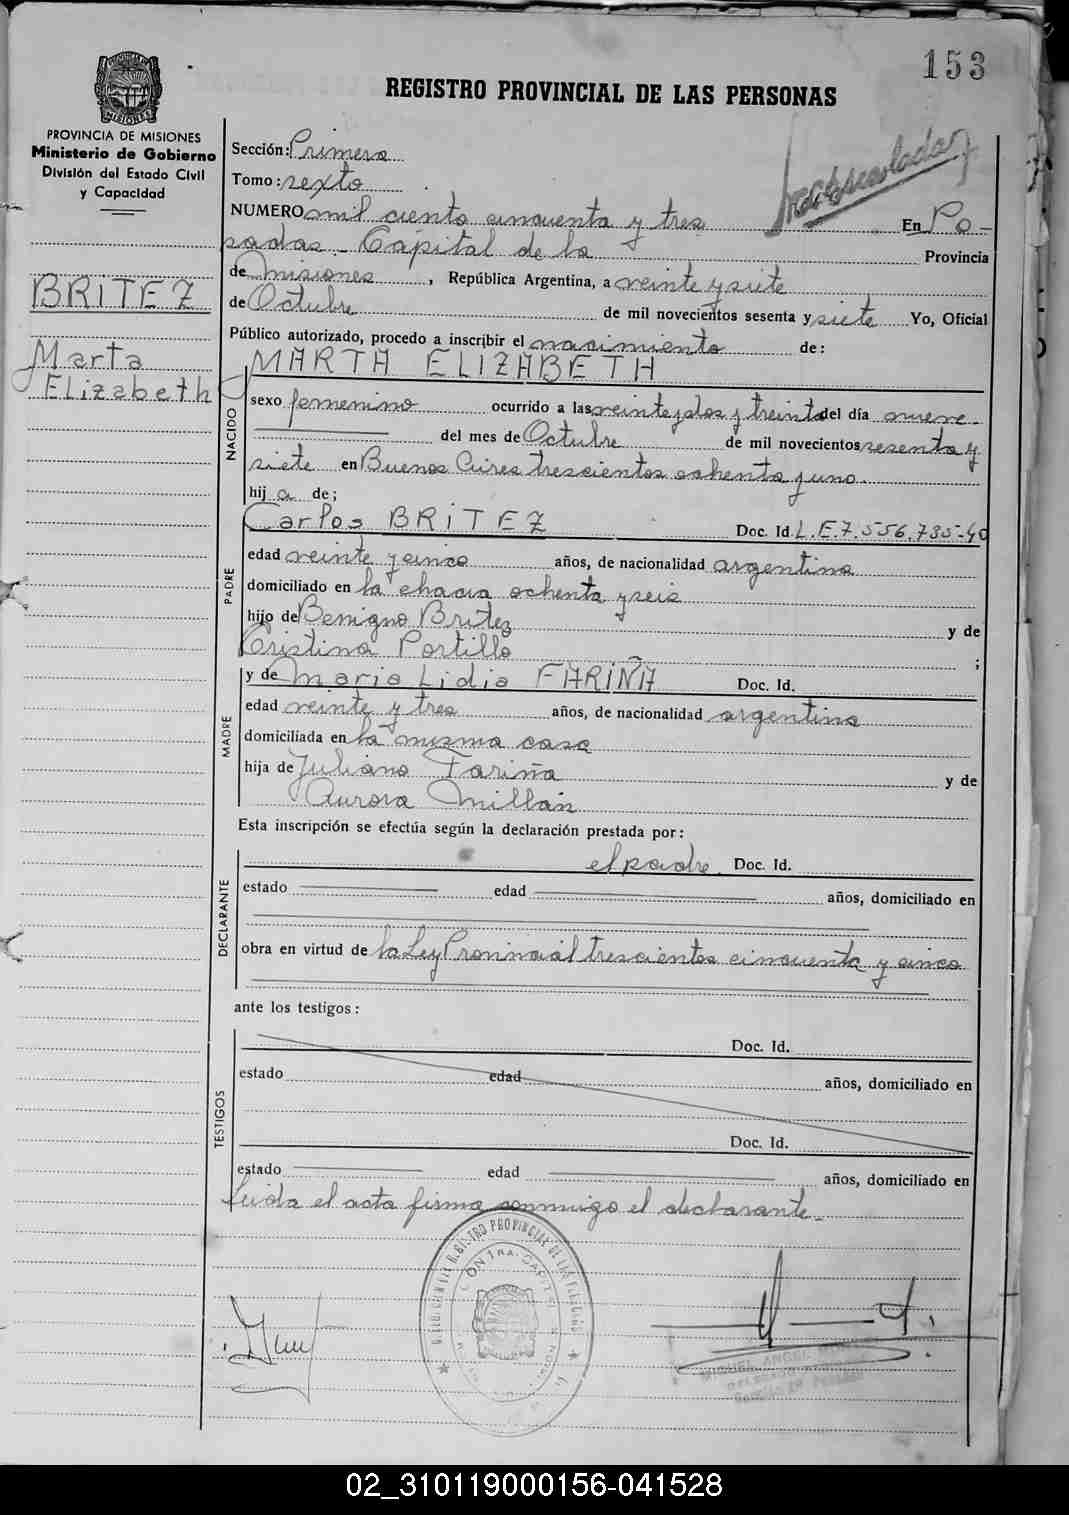 153
REGISTRO PROVINCIAL DE LAS PERSONAS
PROVINCIA DE MISIONES
Ministerio de Gobierno
División del Estado Civil
y Capacidad
BRITEZ
Marta
ELizabeth
Sección: Primera
Tomo: sexto
NUMERO mil ciento cincuenta y tres En Po-
sadas - Capital de la Provincia
de Misiones, República Argentina, a veinte y siete
de Octubre de mil novecientos sesenta y siete Yo, Oficial
Público autorizado, procedo a inscribir el nacimiento de:
MARTA ELIZABETH
NACIDO
sexo femenino ocurrido a las veinte y dos y treinta del día nueve
del mes de Octubre de mil novecientos sesenta y
siete en Buenos Aires trescientos ochenta y uno.
hij a de;
PADRE
Carlos BRITEZ Doc. Id. L.E. 7.556.735-40
edad veinte y cinco años, de nacionalidad argentina
domiciliado en la chacra ochenta y seis
hijo de Benigno Britez y de
Cristina Portillo ;
MADRE
y de Maria Lidia FARIÑA Doc. Id.
edad veinte y tres años, de nacionalidad argentina
domiciliada en la misma casa
hija de Juliano Fariña y de
Aurora Millán
Esta inscripción se efectúa según la declaración prestada por:
DECLARANTE
el padre Doc. Id.
estado edad años, domiciliado en
obra en virtud de la Ley Provincial trescientos cincuenta y cinco
ante los testigos:
TESTIGOS
Doc. Id.
estado edad años, domiciliado en
Doc. Id.
estado edad años, domiciliado en
Leida el acta firma conmigo el declarante.
REGISTRO PROVINCIAL DE LAS PERSONAS
MIGUEL ANGEL
02_310119000156-041528